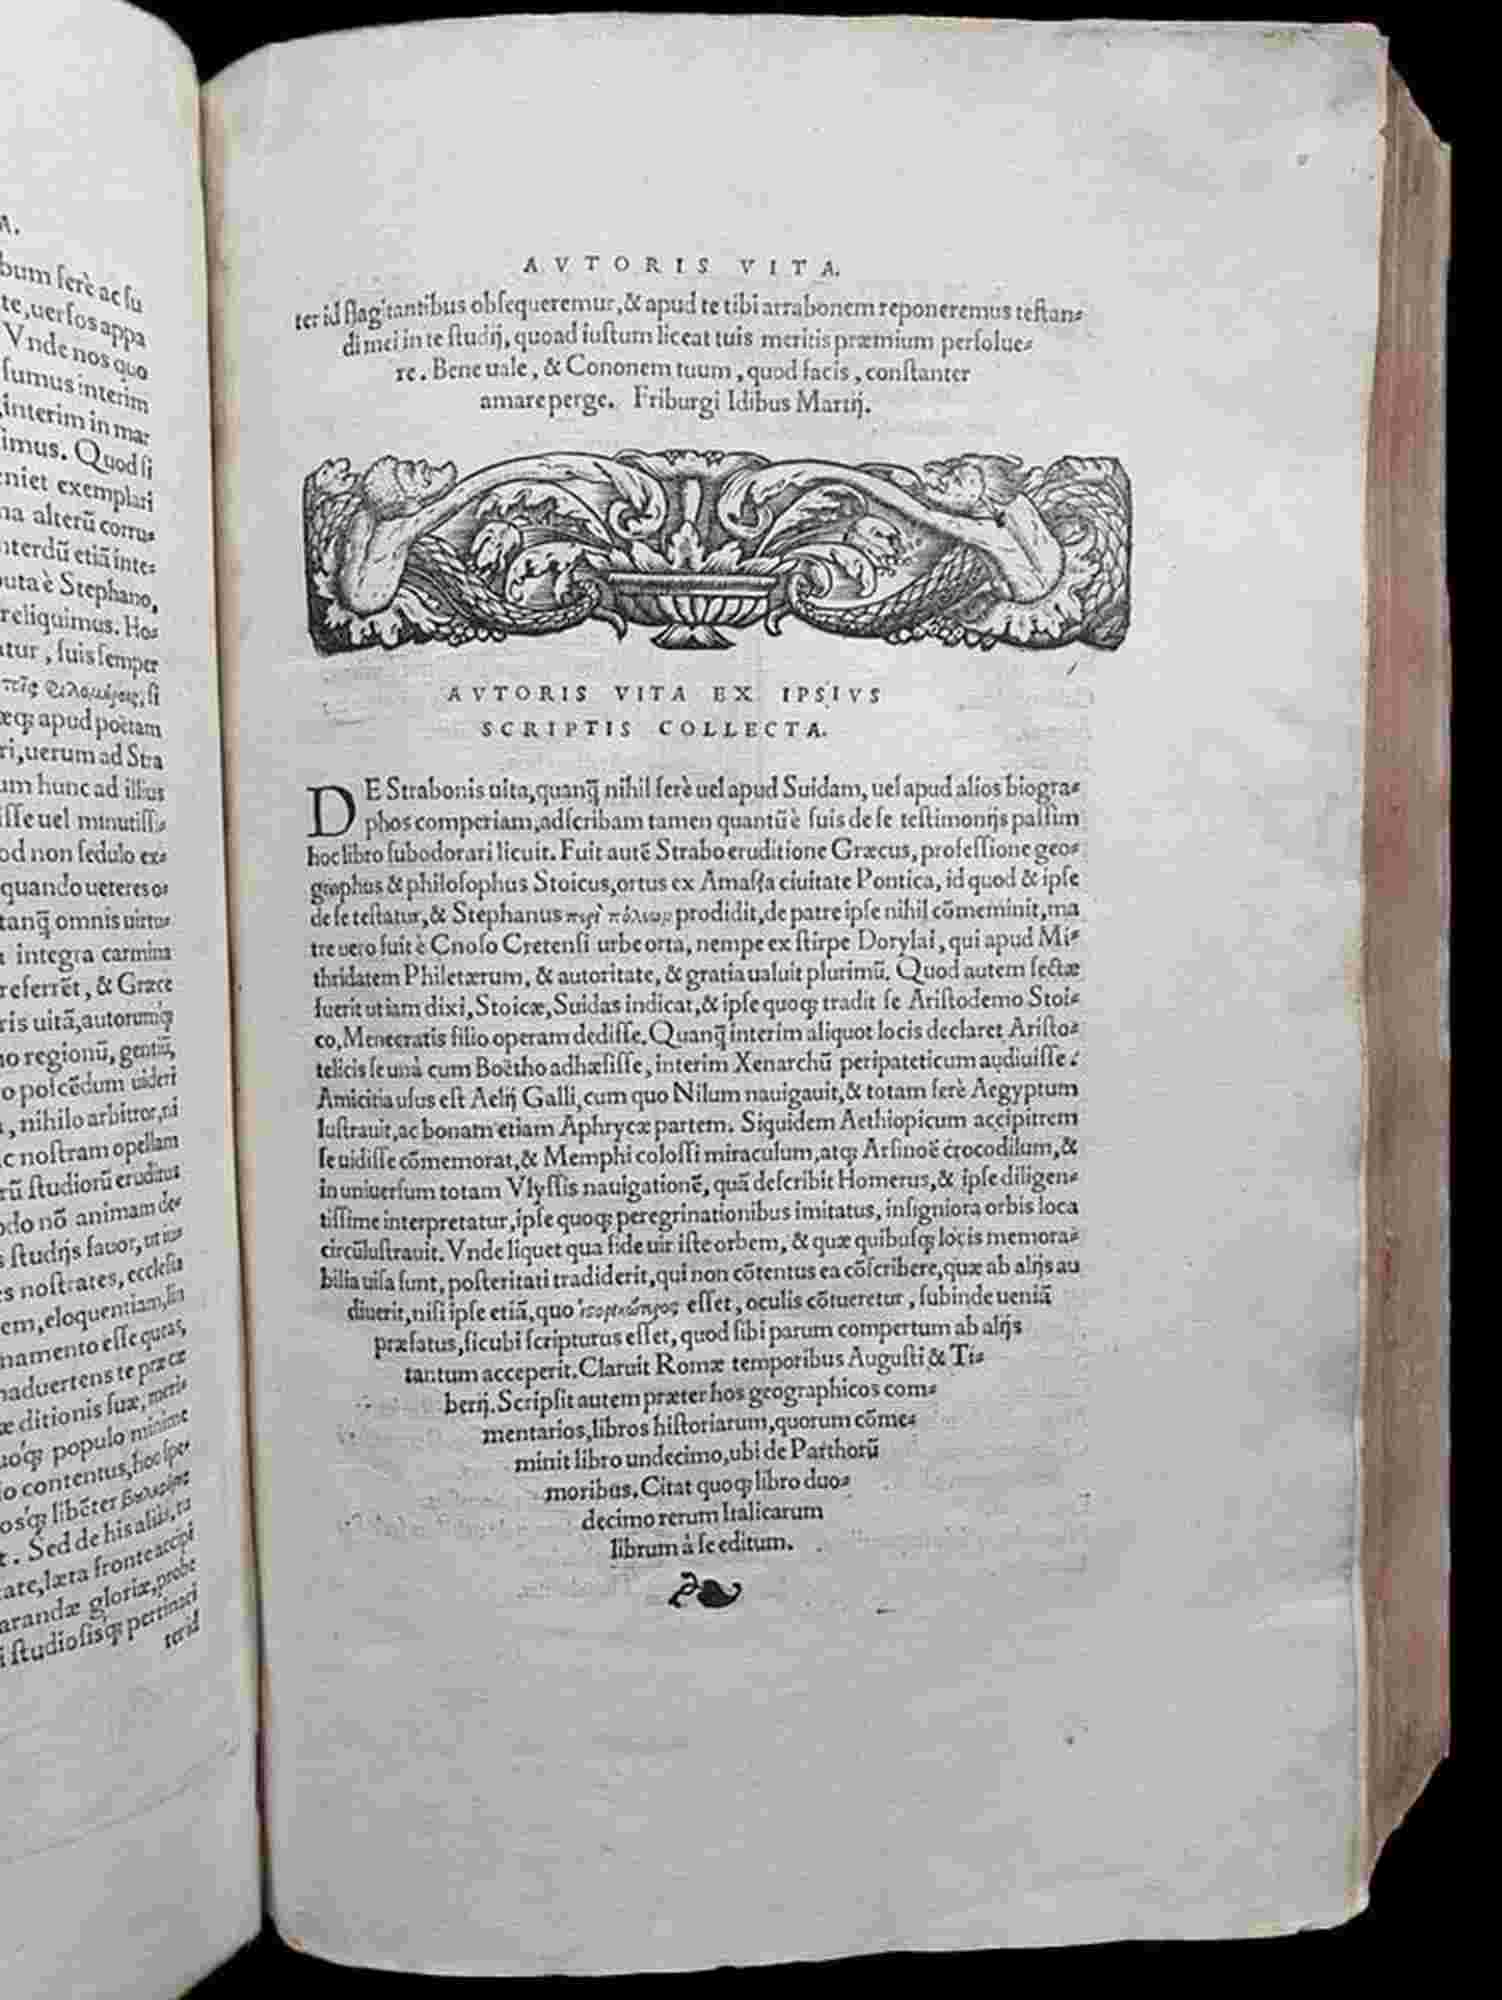 M.
bum ferè ac ſu
te, uerſos appa
Vnde nos quo
ſumus interim
interim in mar
ſimus. Quod ſi
eniet exemplari
na alterū corru⸗
nterdū etiā inte⸗
puta è Stephano,
reliquimus. Ho⸗
atur, ſuis ſemper
ſi
æq; apud poëtam
ri, uerum ad Stra
um hunc ad illius
iſſe uel minutiſſi⸗
od non ſedulo ex⸗
quando ueteres o⸗
tanq̄ omnis uirtu⸗
integra carmina
referrēt, & Græce
ris uitā, autorumq;
no regionū, gentiū,
o poſcēdum uideri
, nihilo arbitror, ni
c noſtram opellam
rū ſtudiorū eruditus
odo nō animam de⸗
s ſtudijs fauor, ut ius
s noſtrates, eccleſia
em, eloquentiam, ſin
namento eſſe queas,
naduertens te præcæ
æ ditionis ſuæ, meris
uoq; populo minime
io contentus, hoc ſper
osq; libēter
t. Sed de his aliàs, tu
ate, læta fronte accipi
arandæ gloriæ, probe
i ſtudioſisq; pertinaci
ter id
AVTORIS VITA.
ter id flagitantibus obſequeremur, & apud te tibi arrabonem reponeremus teſtan⸗
di mei in te ſtudij, quoad iuſtum liceat tuis meritis præmium perſolue⸗
re. Bene uale, & Cononem tuum, quod facis, conſtanter
amare perge. Friburgi Idibus Martij.
AVTORIS VITA EX IPSIVS
SCRIPTIS COLLECTA.
DE Strabonis uita, quanq̄ nihil ferè uel apud Suidam, uel apud alios biogra⸗
phos comperiam, adſcribam tamen quantū è ſuis de ſe teſtimonijs paſſim
hoc libro ſubodorari licuit. Fuit autē Strabo eruditione Græcus, profeſſione geo⸗
graphus & philoſophus Stoicus, ortus ex Amaſia ciuitate Pontica, id quod & ipſe
de ſe teſtatur, & Stephanus περὶ πόλεωμ prodidit, de patre ipſe nihil cōmeminit, ma
tre uero fuit è Cnoſo Cretenſi urbe orta, nempe ex ſtirpe Dorylai, qui apud Mi⸗
thridatem Philetærum, & autoritate, & gratia ualuit plurimū. Quod autem ſectæ
fuerit ut iam dixi, Stoicæ, Suidas indicat, & ipſe quoq; tradit ſe Ariſtodemo Stoi⸗
co, Menecratis filio operam dediſſe. Quanq̄ interim aliquot locis declaret Ariſto⸗
telicis ſe unà cum Boëtho adhæſiſſe, interim Xenarchū peripateticum audiuiſſe.
Amicitia uſus eſt Aelij Galli, cum quo Nilum nauigauit, & totam ferè Aegyptum
luſtrauit, ac bonam etiam Aphrycæ partem. Siquidem Aethiopicum accipitrem
ſe uidiſſe cōmemorat, & Memphi coloſſi miraculum, atq; Arſinoë crocodilum, &
in uniuerſum totam Vlyſſis nauigationē, quā deſcribit Homerus, & ipſe diligen⸗
tiſſime interpretatur, ipſe quoq; peregrinationibus imitatus, inſigniora orbis loca
circūluſtrauit. Vnde liquet qua fide uir iſte orbem, & quæ quibuſq; locis memora⸗
bilia uiſa ſunt, poſteritati tradiderit, qui non cōtentus ea cōſcribere, quæ ab alijs au
diuerit, niſi ipſe etiā, quo ἱστορικώτερος eſſet, oculis cōtueretur, ſubinde ueniā
præfatus, ſicubi ſcripturus eſſet, quod ſibi parum compertum ab alijs
tantum acceperit. Claruit Romæ temporibus Auguſti & Ti⸗
berij. Scripſit autem præter hos geographicos com⸗
mentarios, libros hiſtoriarum, quorum cōme⸗
minit libro undecimo, ubi de Parthorū
moribus. Citat quoq; libro duo⸗
decimo rerum Italicarum
librum à ſe editum.